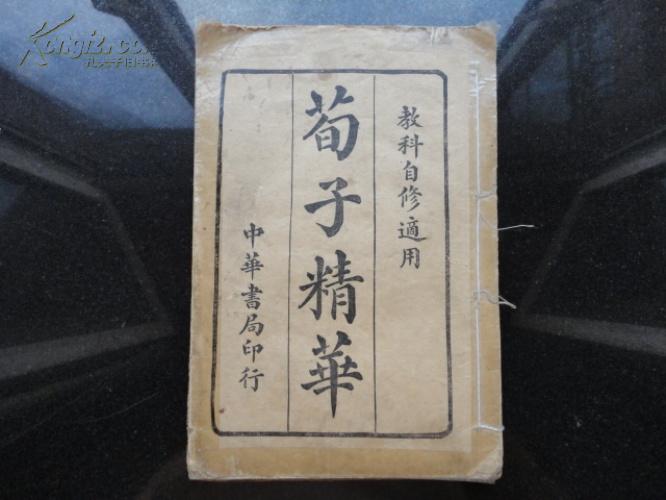 教科自修適用
荀子精華
中華書局印行
Kongfz.com
孔夫子旧书网